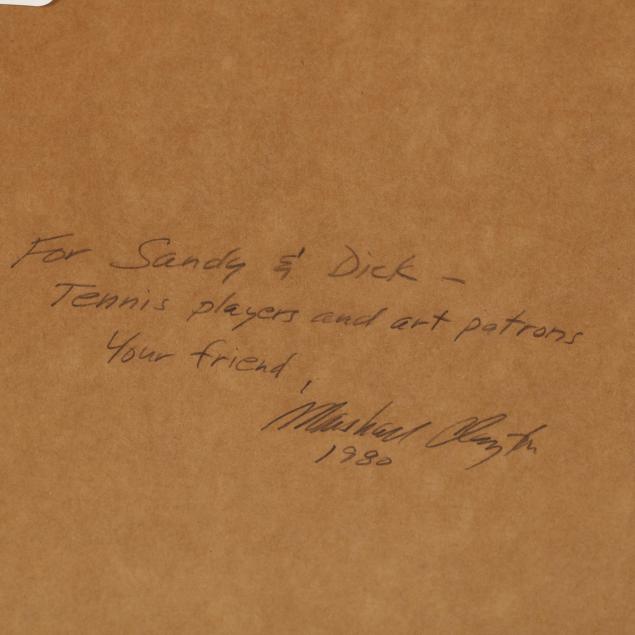 For Sandy & Dick –
Tennis players and art patrons
Your friend,
Marshall Clayton
1980